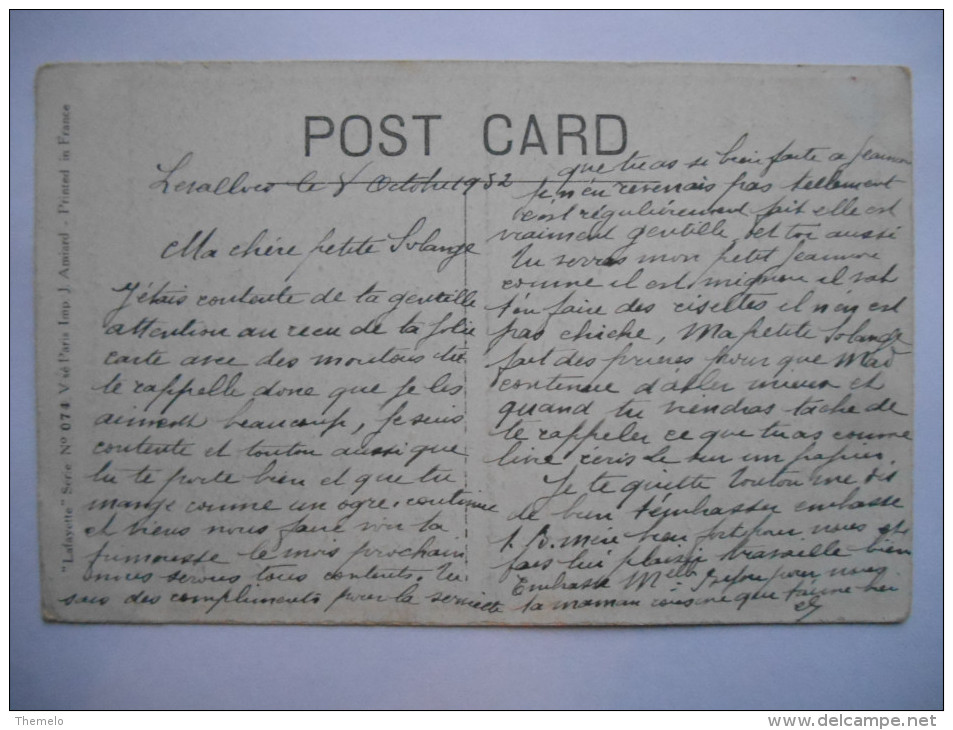 POST CARD
"Lafayette" Série N° 074 V sé Paris Imp J. Amiard - Printed in France
Levallois le 8 Octobre 1932
Ma chère petite Solange
J'étais contente de ta gentille
attention au recu de ta jolie
carte avec des moutons tu
te rappelle donc que je les
aiment beaucoup, je suis
contente et toutou aussi que
tu te porte bien et que tu
mange comme un ogre. continue
et viens nous faire voir ta
frimousse le mois prochain
nous serons tous contents. Tu
sais des compliments pour la serviette
que tu as si bien faite a Jeannon
Je n'en revenais pas tellement
c'est régulièrement fait elle est
vraiment gentille, et toi aussi
Tu verras mon petit Jeannon
comme il est mignon il vat
t'en faire des risettes il n'en est
pas chiche, Ma petite Solange
fait des prieres pour que Mad
continue d'aller mieux et
quand tu viendras tache de
te rappeler ce que tu as comme
livre ecris le sur un papier
Je te quitte toutou me dit
de bien t'embrasser embrasse
bien fort pour nous et
fais lui plaisir travaille bien
Embrasse Melle pour nous
ta maman cousine qui t'aime
Themelo
www.delcampe.net